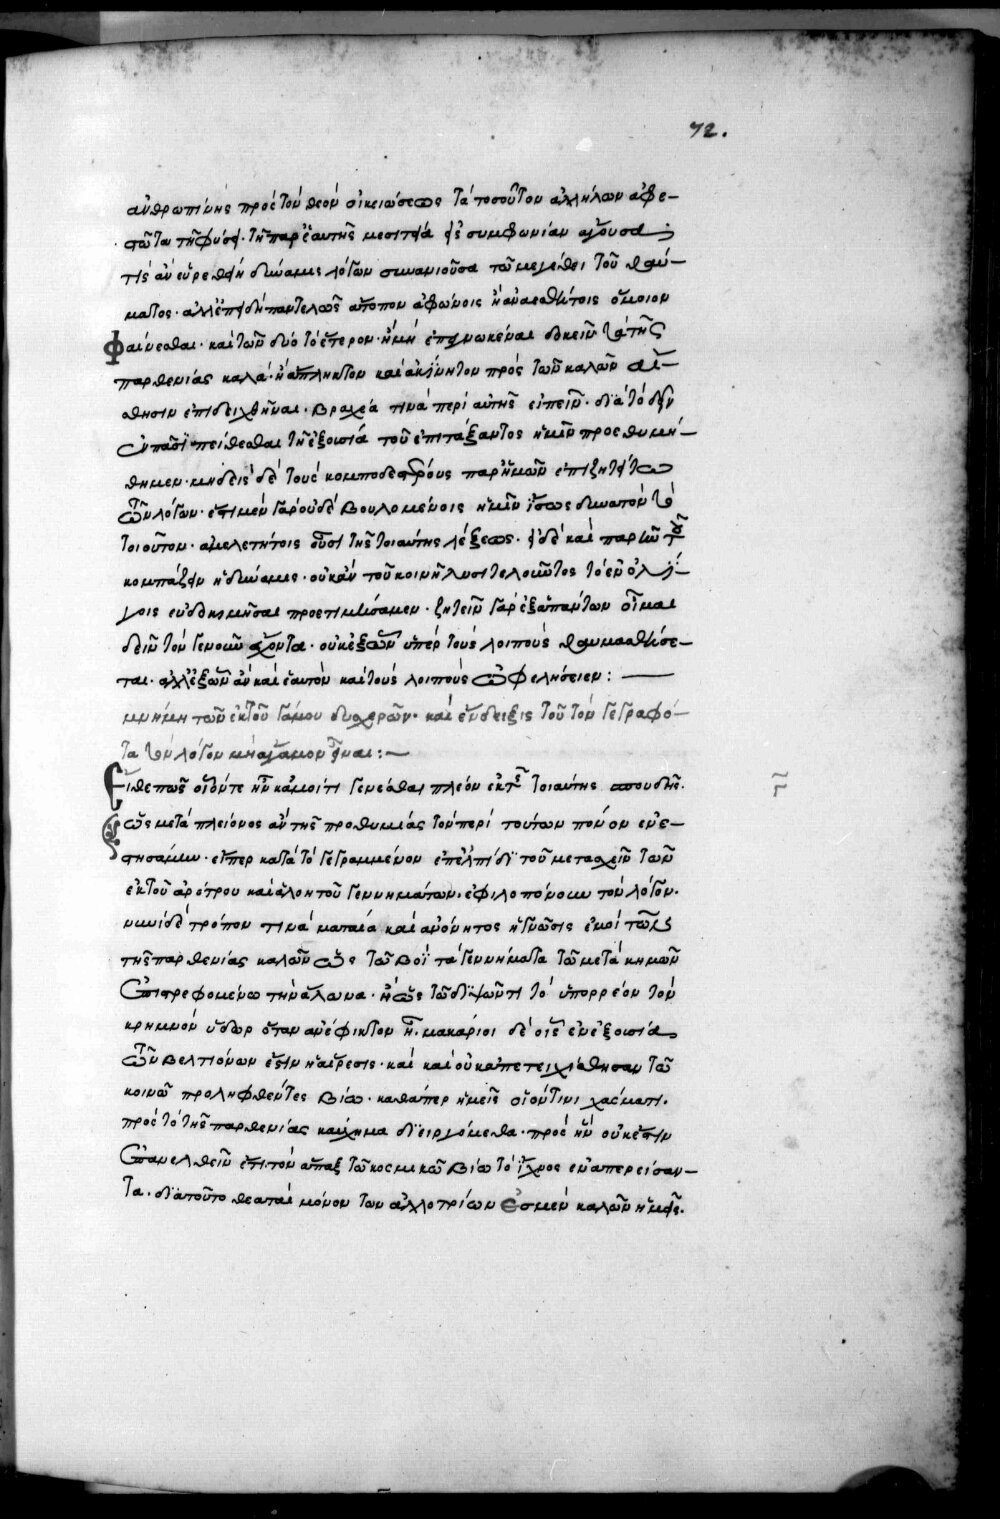 72.
ἀνθρωπίνης πρὸς τὸν θεὸν οἰκειώσεως τὰ τοσοῦτον ἀλλήλων ἀφε-
στῶτα τῇ φύσει. τῇ παρ ἑαυτῆς μεσιτείᾳ εἰς συμφωνίαν ἄγουσα;
τίς ἂν εὑρεθείη δύναμις λόγων συνανιοῦσα τῷ μεγέθει τοῦ θαύ-
ματος. ἀλλ ἐπειδὴ παντελῶς ἄτοπον ἀφώνοις ἢ ἀναισθήτοις ὅμοιον
φαίνεσθαι. καὶ τῶν δύο τὸ ἕτερον. ἢ μὴ ἐπεγνωκέναι δοκεῖν τὰ τῆς
παρθενίας καλά. ἢ ἄπληκτον καὶ ἀκίνητον πρὸς τῶν καλῶν αἴ-
σθησιν ἐπιδειχθῆναι. βραχέα τινὰ περὶ αὐτῆς εἰπεῖν. διὰ τὸ δεῖν
ἐν πᾶσι πείθεσθαι τῇ ἐξουσίᾳ τοῦ ἐπιτάξαντος ἡμῖν προεθυμή-
θημεν. μηδεὶς δὲ τοὺς κομπωδεστέρους παρ ἡμῶν ἐπιζητείτω
τῶν λόγων. ἔστι μὲν γὰρ οὐδὲ βουλομένοις ἡμῖν ἴσως δυνατὸν τὸ
τοιοῦτον. ἀμελετήτοις οὖσι τῆς τοιαύτης λέξεως. εἰ δὲ καὶ παρῆν τοῦ
κομπάζειν ἡ δύναμις. οὐκ ἂν τοῦ κοινῇ λυσιτελοῦντος τὸ ἐν ὀλί-
γοις εὐδοκιμῆσαι προετιμήσαμεν. ζητεῖν γὰρ ἐξ ἁπάντων οἶμαι
δεῖν τὸν γε νοῦν ἔχοντα. οὐκ ἐξ ὧν ὑπὲρ τοὺς λοιποὺς θαυμασθήσε-
ται. ἀλλ ἐξ ὧν ἂν καὶ ἑαυτὸν καὶ τοὺς λοιποὺς ὠφελήσειεν:
μνήμη τῶν ἐκ τοῦ γάμου δυσχερῶν. καὶ ἔνδειξις τοῦ τὸν γεγραφό-
τα τὸν λόγον μὴ ἄγαμον εἶναι:
Εἴθε πως οἷόν τε ἦν κἀμοί τι γενέσθαι πλέον ἐκ τῆς τοιαύτης σπουδῆς.
ὡς μετὰ πλείονος ἂν τῆς προθυμίας τὸν περὶ τούτων πόνον ἐνε-
στησάμην. εἴπερ κατὰ τὸ γεγραμμένον ἐπ ἐλπίδι τοῦ μετασχεῖν τῶν
ἐκ τοῦ ἀρότρου καὶ ἁλοητοῦ γεννημάτων. ἐφιλοπόνουν τὸν λόγον.
νυνὶ δὲ τρόπον τινὰ ματαία καὶ ἀνόνητος ἡ γνῶσις ἐμοὶ τῶν
τῆς παρθενίας καλῶν ὡς τῷ βοῒ τὰ γεννήματα τῷ μετὰ κημῶν
ἐπιστρεφομένῳ τὴν ἅλωνα. ἢ ὡς τῷ διψῶντι τὸ ὑπορρέον τὸν
κρημνὸν ὕδωρ ὅταν ἀνέφικτον ᾖ. μακάριοι δὲ οἷς ἐν ἐξουσίᾳ
τῶν βελτιόνων ἐστὶν ἡ αἵρεσις. καὶ καὶ οὐκ ἀπετειχίσθησαν τῷ
κοινῷ προληφθέντες βίῳ. καθάπερ ἡμεῖς οἷόν τινι χάσματι.
πρὸς τὸ τῆς παρθενίας καύχημα διειργόμεθα. πρὸς ἣν οὐκ ἔστιν
ἐπανελθεῖν ἔτι τὸν ἅπαξ τῷ κοσμικῷ βίῳ τὸ ἴχνος ἐναπερείσαν-
τα. διὰ τοῦτο θεαταὶ μόνον τῶν ἀλλοτρίων ἐσμὲν καλῶν ἡμεῖς.